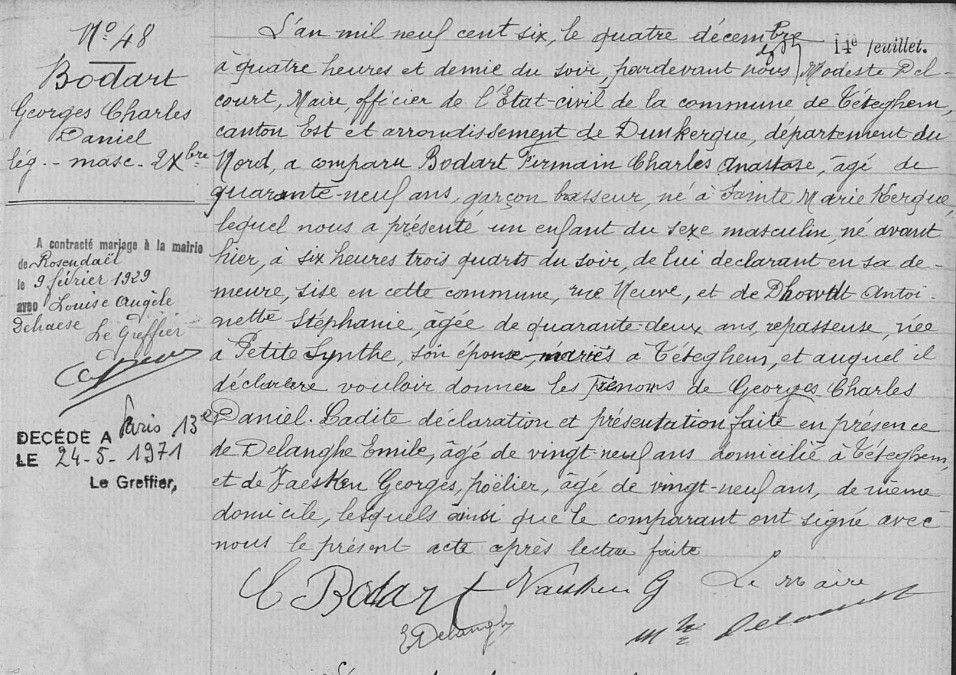 N° 48
Bodart
Georges Charles
Daniel
lég. - masc - 2 Xbre
A contracté mariage à la mairie
de Rosendaël
le 9 février 1929
avec Louise Angèle
Dehaese
Le Greffier
DÉCÉDÉ A Paris 13e
LE 24-5-1971
Le Greffier,
14e feuillet.
L'an mil neuf cent six, le quatre décembre
à quatre heures et demie du soir, pardevant nous Modeste Del-
court, Maire, officier de l'Etat-civil de la commune de Téteghem,
canton Est et arrondissement de Dunkerque, département du
Nord, a comparu Bodart Firmain Charles Anastase, âgé de
quarante-neuf ans, garçon brasseur, né à Sainte Marie Kerque,
lequel nous a présenté un enfant du sexe masculin, né avant
hier, à six heures trois quarts du soir, de lui déclarant en sa de-
meure, sise en cette commune, rue Neuve, et de Dhowdt Antoi-
nette Stéphanie, âgée de quarante-deux ans, repasseuse, née
à Petite Synthe, son épouse, mariés à Téteghem, et auquel il
déclare vouloir donner les prénoms de Georges Charles
Daniel. Ladite déclaration et présentation faite en présence
de Delanghe Emile, âgé de vingt-neuf ans domicilié à Téteghem,
et de Vaesken Georges, poëlier, âgé de vingt-neuf ans, de même
domicile, lesquels ainsi que le comparant ont signé avec
nous le présent acte après lecture faite
C Bodart Vaesken G Le Maire
E Delanghe
Delcourt